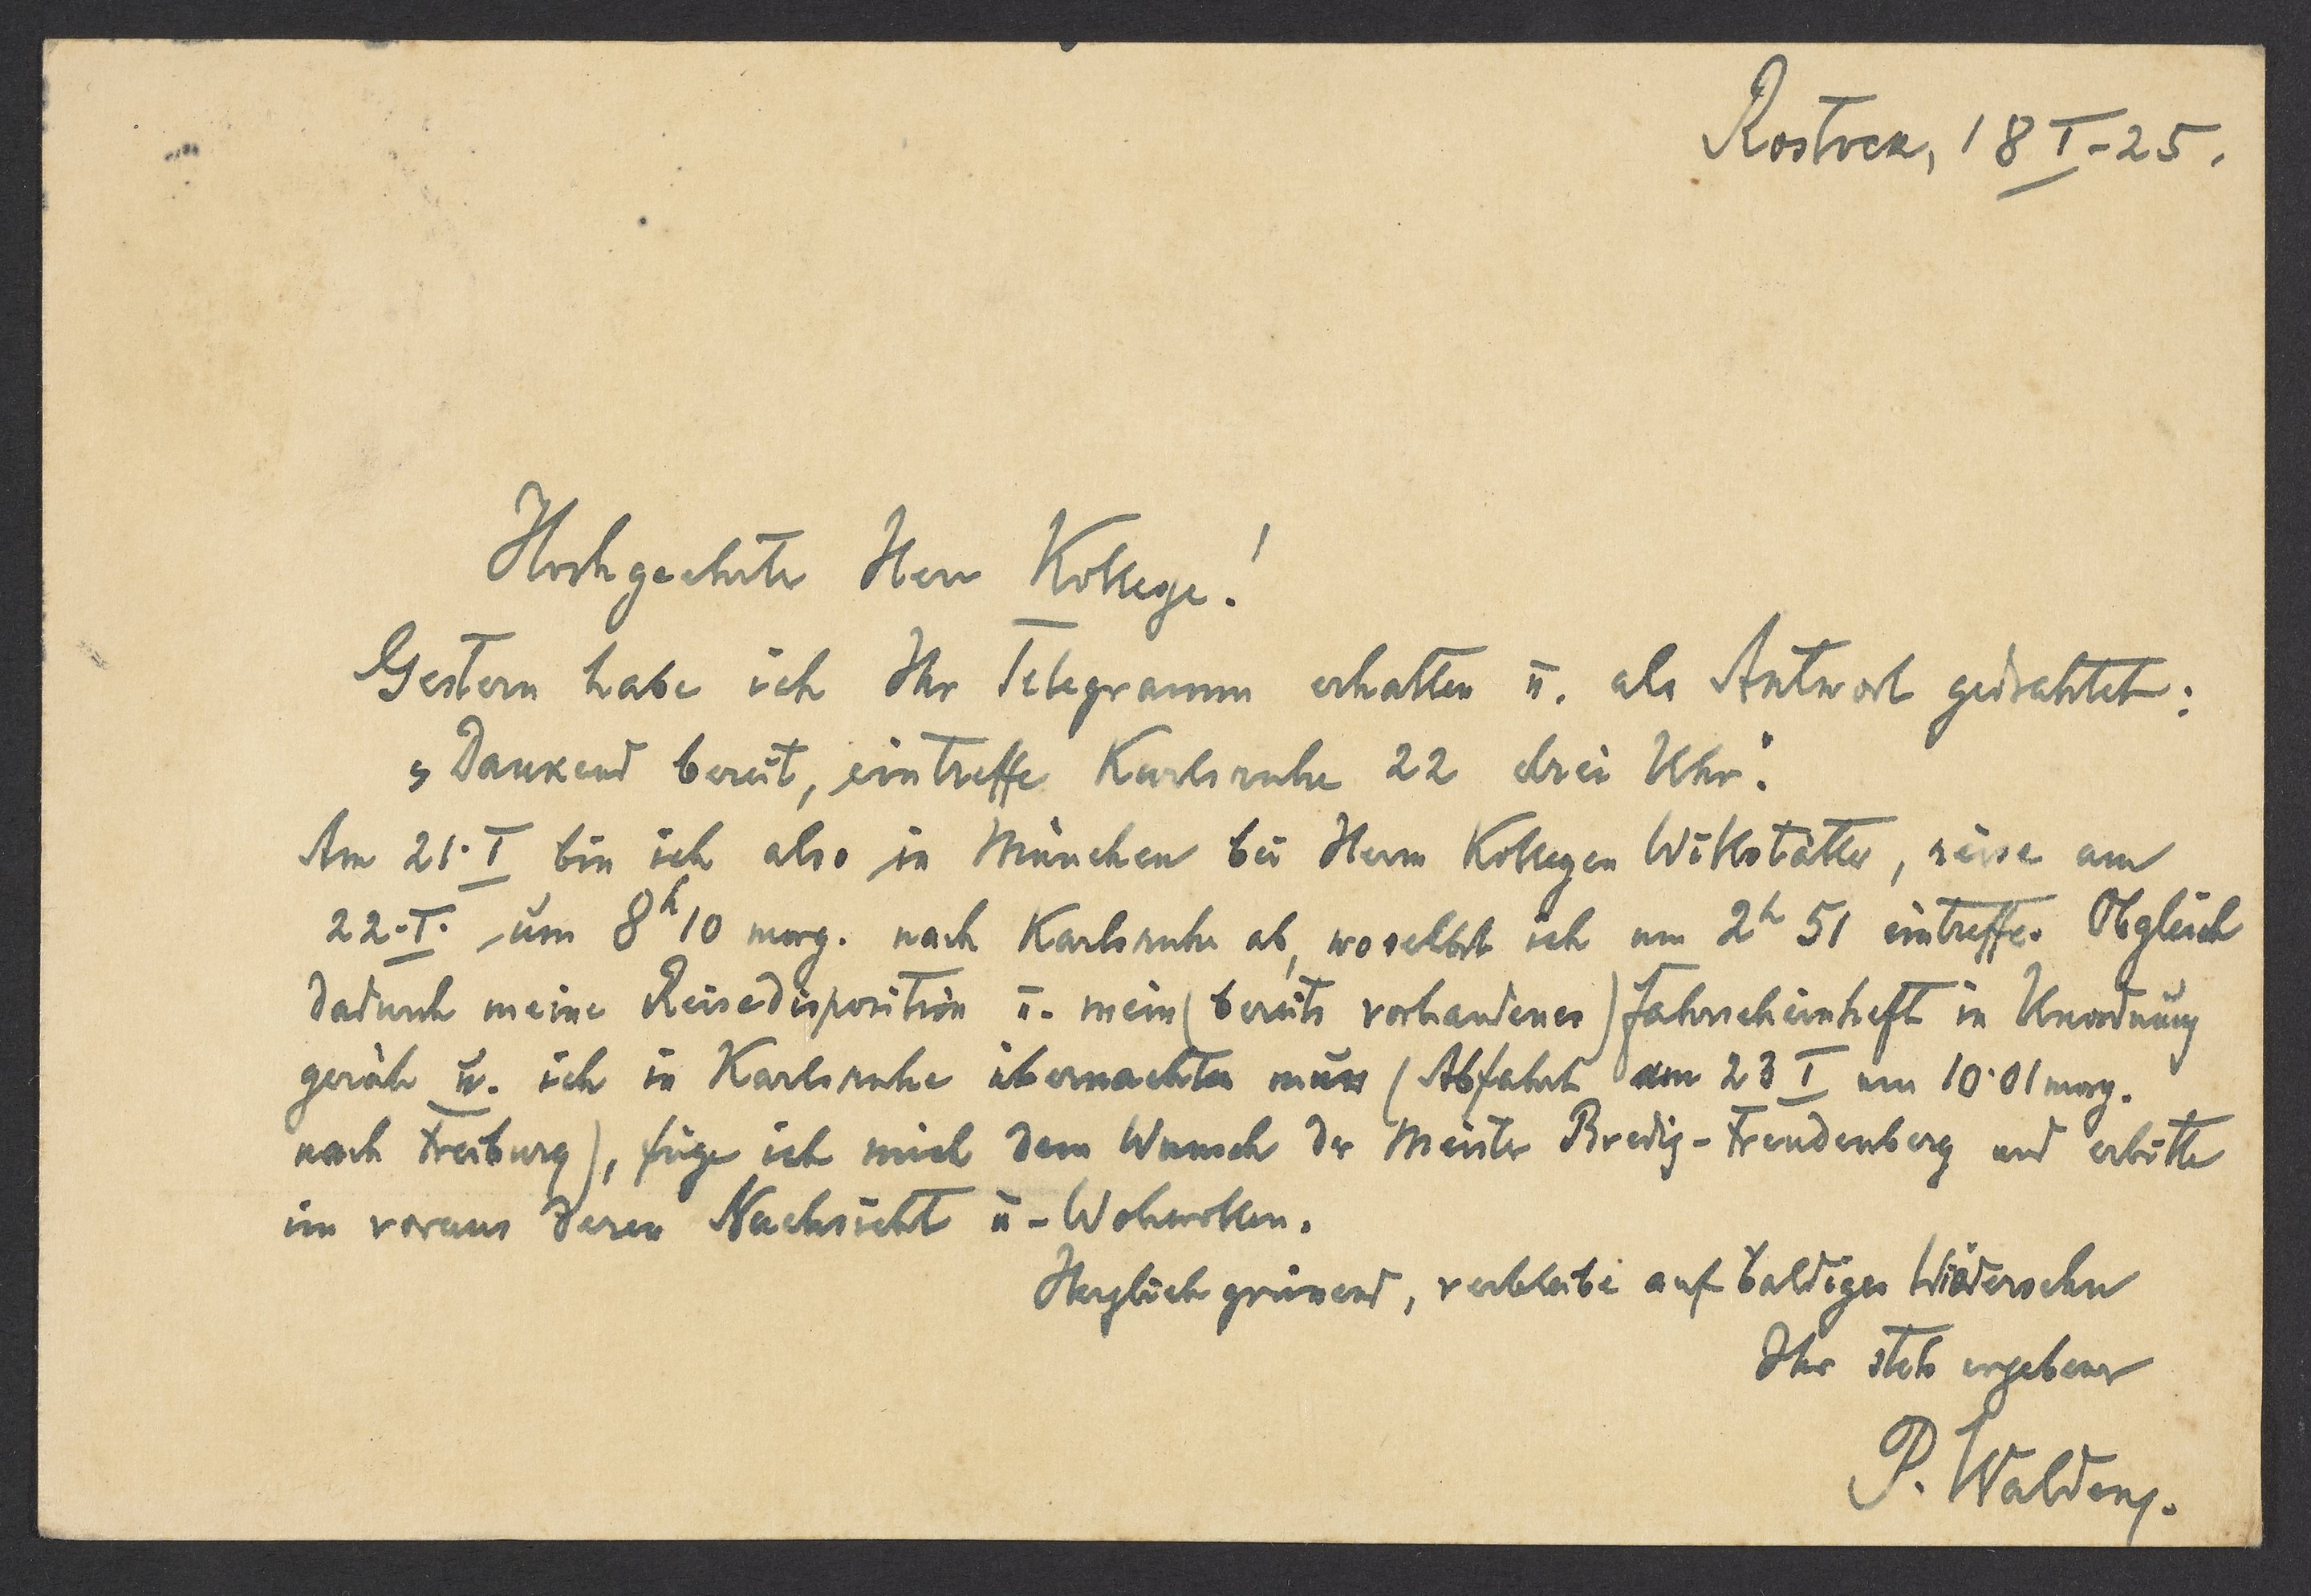 Rostock, 18 I-25.
Hochgeehrter Herr Kollege!
Gestern habe ich Ihr Telegramm erhalten u. als Antwort gedrahtet:
„Dankend bereit, eintreffe Karlsruhe 22 drei Uhr".
Am 21. I bin ich also in München bei Herrn Kollegen Willstätter, reise am
22. I. um 8h 10 morg. nach Karlsruhe ab, woselbst ich um 2h 51 eintreffe. Obgleich
dadurch meine Reisedisposition u. mein (bereits vorhandenes) Fahrscheinheft in Unordnung
gerät u. ich in Karlsruhe übernachten muss (Abfahrt am 23 I um 10.01 morg.
nach Freiburg), füge ich mich dem Wunsch der Meister Bredig-Freudenberg und erbitte
im voraus deren Nachsicht u. Wohlwollen.
Herzlich grüssend, verbleibe auf baldiges Wiedersehn
Ihr stets ergebener
P. Walden.